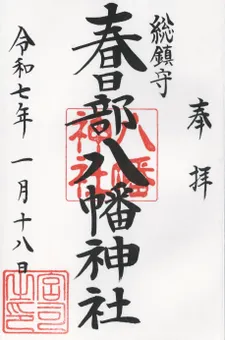 奉拝
総鎮守
春日部八幡神社
八幡
神社
令和七年一月十八日
宮司之印